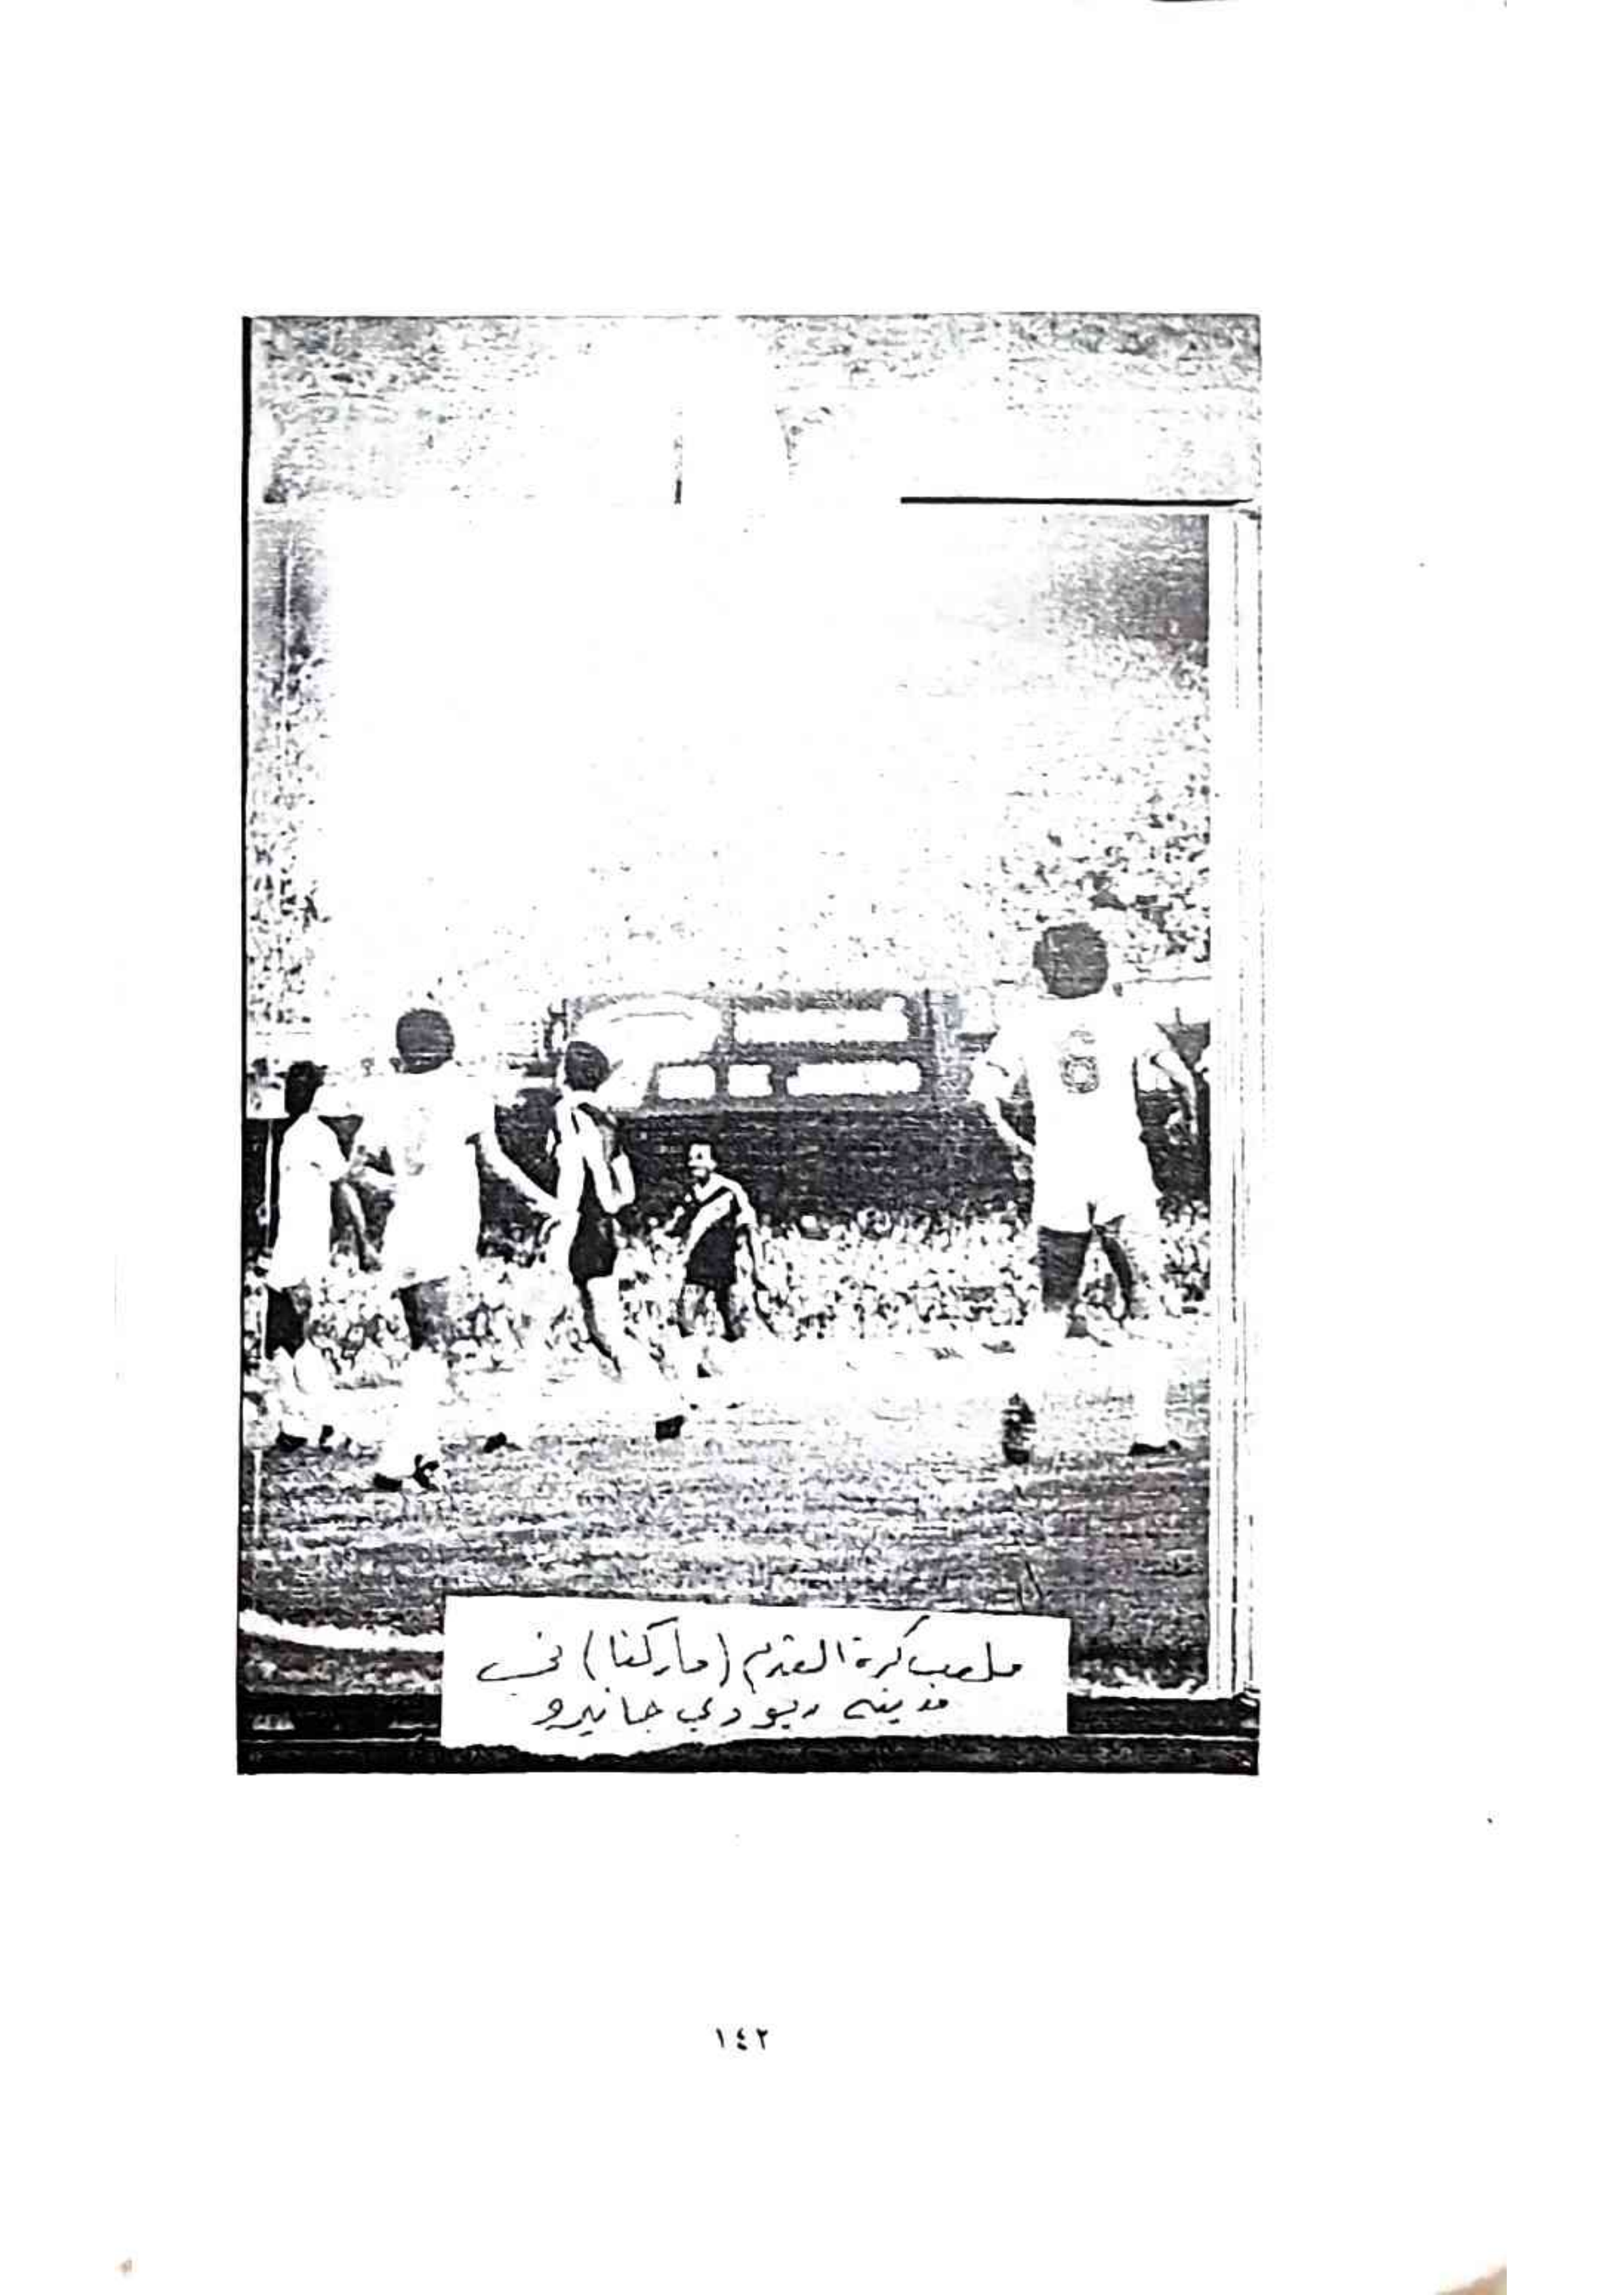 6
ملعب كرة القدم (ماركنا) في
مدينة ريودي جانيرو
١٤٢